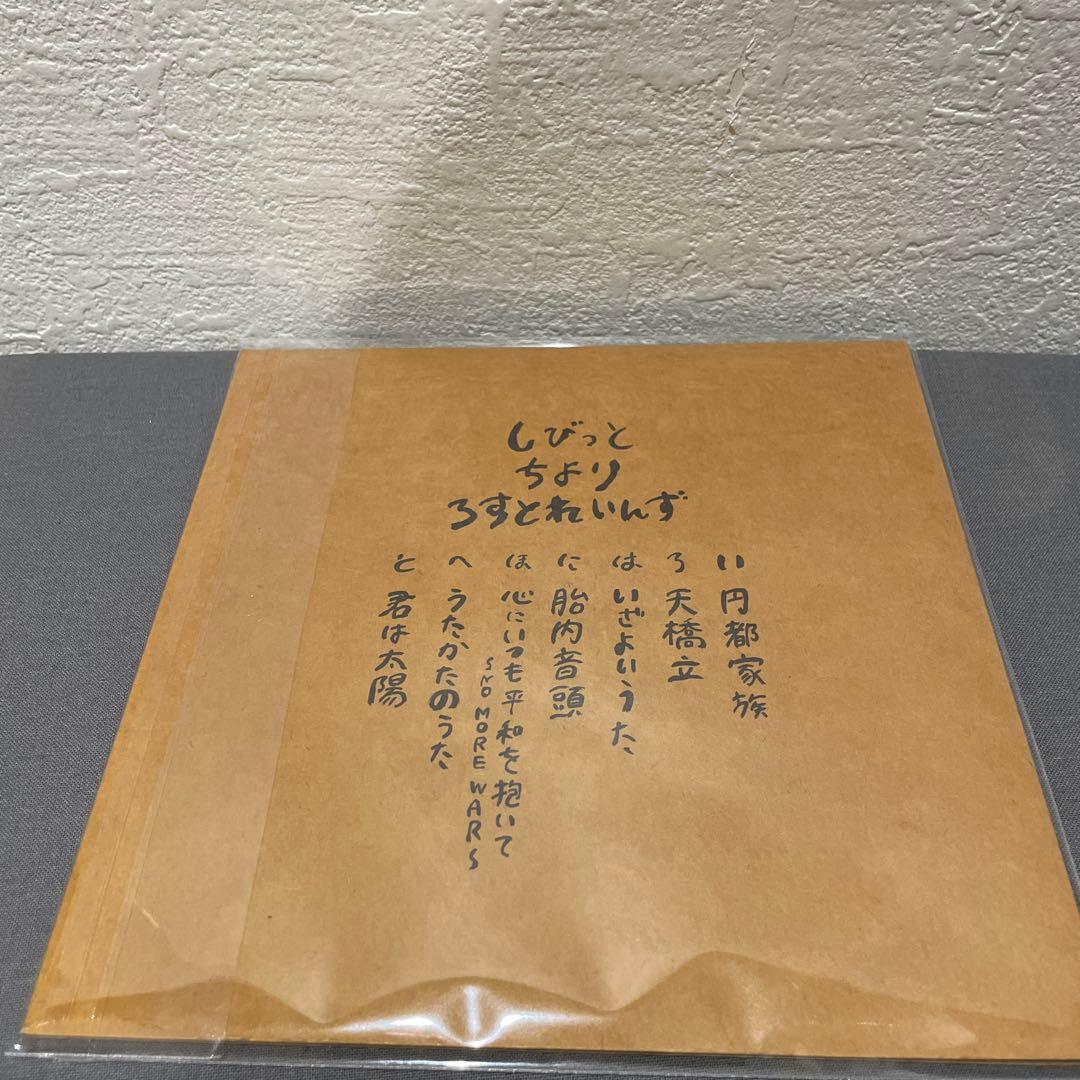 しびっと
ちより
ろすとれいんず
い 円都家族
ろ 天橋立
は いざよいうた
に 胎内音頭
ほ 心にいつも平和を抱いて
~NO MORE WAR~
へ うたかたのうた
と 君は太陽